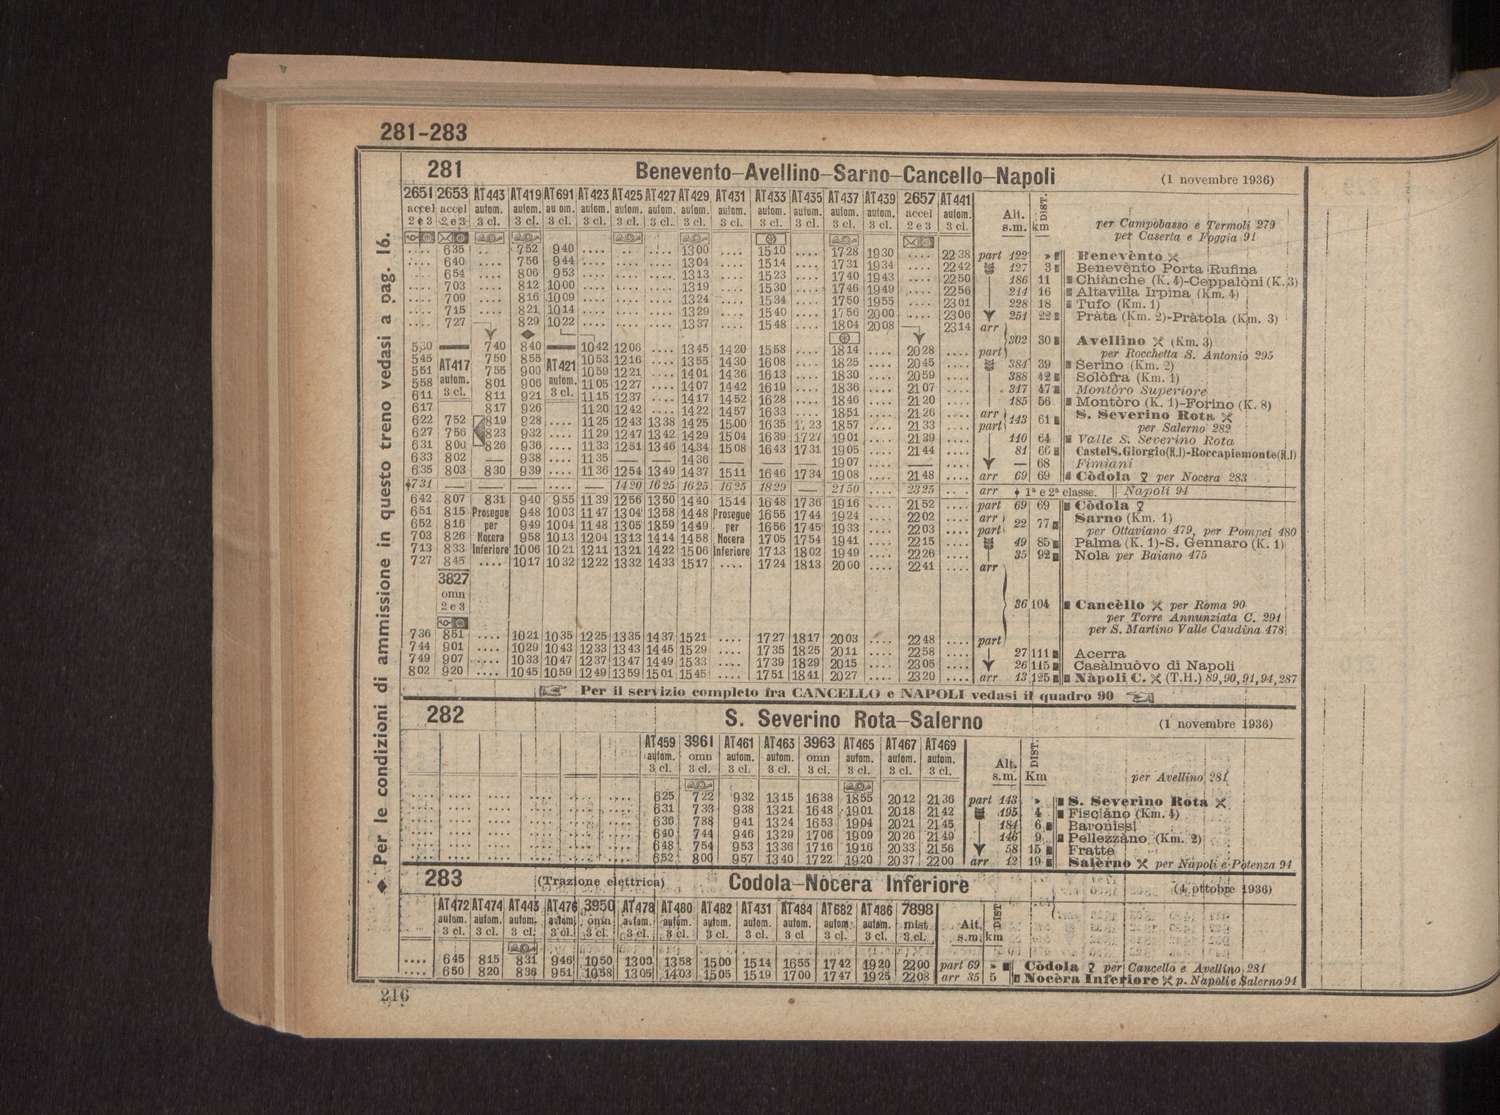 281-283
281 Benevento-Avellino-Sarno-Cancello-Napoli (1 novembre 1936)
2651 2653 AT443 AT419 AT691 AT423 AT425 AT427 AT429 AT431 AT433 AT435 AT437 AT439 2657 AT441
accel accel autom. autom. autom. autom. autom. autom. autom. autom. autom. autom. autom. autom. accel autom. Alt. DIST.
2 e 3 2 e 3 3 cl. 3 cl. 3 cl. 3 cl. 3 cl. 3 cl. 3 cl. 3 cl. 3 cl. 3 cl. 3 cl. 3 cl. 2 e 3 3 cl. s.m. km
per Campobasso e Termoli 279
per Caserta e Foggia 91
.... 635 .. 752 940 .... .. .. 1300 .... 1510 .... 1728 1930 .... 2238 part 122 » Benevènto
.... 640 .... 756 944 .... .... .... 1304 .... 1514 .... 1731 1934 .... 2242 127 3 Benevènto Porta Rufina
.... 654 .... 806 953 .... .... .... 1313 .... 1523 .... 1740 1943 .... 2250 186 11 Chiànche (K. 4)-Ceppalòni (K. 3)
.... 703 .... 812 1000 .... .... .... 1319 .... 1530 .... 1746 1949 .... 2256 214 16 Altavilla Irpina (Km. 4)
.... 709 .... 816 1009 .... .... .... 1324 .... 1534 .... 1750 1955 .... 2301 228 18 Tufo (Km. 1)
.... 715 .... 821 1014 .... .... .... 1329 .... 1540 .... 1756 2000 .... 2306 251 22 Pràta (Km. 2)-Pràtola (Km. 3)
.... 727 — 829 1022 .... .... .... 1337 .... 1548 .... 1804 2008 — 2314 arr
302 30 Avellino (Km. 3)
530 740 840 1042 1206 .... 1345 1420 1558 .... 1814 .... 2028 .... part per Rocchetta S. Antonio 295
545 AT417 750 855 AT421 1053 1216 .... 1355 1430 1608 .... 1825 .... 2045 .... 384 39 Serino (Km. 2)
551 autom. 755 900 autom. 1059 1221 .... 1401 1436 1613 .... 1830 .... 2059 .... 388 42 Solòfra (Km. 1)
558 3 cl. 801 906 3 cl. 1105 1227 .... 1407 1442 1619 .... 1836 .... 2107 .... 317 47 Montòro Superiore
611 811 921 1115 1237 .... 1417 1452 1628 .... 1846 .... 2120 .... 185 56 Montòro (K. 1)-Forino (K. 8)
617 817 926 1120 1242 .... 1422 1457 1633 .... 1851 .... 2126 .... arr 143 61 S. Severino Rota
622 752 819 928 .... 1125 1243 1338 1425 1500 1635 23 1857 .... 2133 .... part per Salerno 282
627 756 823 932 .... 1129 1247 1342 1429 1504 1639 1727 1901 .... 2139 .... 110 64 Valle S. Severino Rota
631 800 826 936 .... 1133 1251 1346 1434 1508 1643 1731 1905 .... 2144 .... 81 66 Castel S. Giorgio (K.1)-Roccapiemonte (K.1)
633 802 — 938 .... 1135 — — 1436 — — — 1907 .... — .... — 68 Fimiani
635 803 830 939 .... 1136 1254 1349 1437 1511 1646 1734 1908 .... 2148 .... arr 69 69 Còdola per Nocera 283
731 — — — — — 1420 1625 1625 1625 1829 — 2150 .... 2325 .. arr 1ª e 2ª classe. Napoli 94
642 807 831 940 955 1139 1256 1350 1440 1514 1648 1736 1916 .... 2152 .... part 69 69 Còdola
651 815 Prosegue 948 1003 1147 1304 1358 1448 Prosegue 1655 1744 1924 .... 2202 .... arr 22 77 Sarno (Km. 1)
652 816 per 949 1004 1148 1305 1359 1449 per 1656 1745 1933 .... 2203 .... part per Ottaviano 479, per Pompei 480
703 826 Nocera 958 1013 1204 1313 1414 1458 Nocera 1705 1754 1941 .... 2215 .... 49 85 Palma (K. 1)-S. Gennaro (K. 1)
713 833 Inferiore 1006 1021 1211 1321 1422 1506 Inferiore 1713 1802 1949 .... 2226 .... 35 92 Nola per Baiano 475
727 845 .... 1017 1032 1222 1332 1433 1517 .... 1724 1813 2000 .... 2241 .... arr
3827
omn
2 e 3
36 104 Cancèllo per Roma 90
per Torre Annunziata C. 291
per S. Martino Valle Caudina 478
736 851 .... 1021 1035 1225 1335 1437 1521 .... 1727 1817 2003 .... 2248 .... part
744 901 .... 1029 1043 1233 1343 1445 1529 .... 1735 1825 2011 .... 2258 .... 27 111 Acerra
749 907 .... 1033 1047 1237 1347 1449 1533 .... 1739 1829 2015 .... 2305 .... 26 115 Casàlnuòvo di Napoli
802 920 .... 1045 1059 1249 1359 1501 1545 .... 1751 1841 2027 .... 2320 .... arr 13 125 Nàpoli C. (T.H.) 89,90,91,94,287
Per il servizio completo fra CANCELLO e NAPOLI vedasi il quadro 90
282 S. Severino Rota-Salerno (1 novembre 1936)
AT459 3961 AT461 AT463 3963 AT465 AT467 AT469
autom. omn autom. autom. omn autom. autom. autom. Alt. DIST.
3 cl. 3 cl. 3 cl. 3 cl. 3 cl. 3 cl. 3 cl. 3 cl. s.m. Km per Avellino 281
625 722 932 1315 1638 1855 2012 2136 part 143 » S. Severino Rota
631 733 938 1321 1648 1901 2018 2142 195 4 Fisciàno (Km. 4)
636 738 941 1324 1653 1904 2021 2145 184 6 Baronissi
640 744 946 1329 1706 1909 2026 2149 146 9 Pellezzàno (Km. 2)
648 754 953 1336 1716 1916 2033 2156 58 15 Fratte
652 800 957 1340 1722 1920 2037 2200 arr 12 19 Salèrno per Napoli e Potenza 94
283 (Trazione elettrica) Codola-Nocera Inferiore (4 ottobre 1936)
AT472 AT474 AT443 AT476 3950 AT478 AT480 AT482 AT431 AT484 AT682 AT486 7898
autom. autom. autom. autom. omn autom. autom. autom. autom. autom. autom. autom. mist Alt. DIST
3 cl. 3 cl. 3 cl. 3 cl. 3 cl. 3 cl. 3 cl. 3 cl. 3 cl. 3 cl. 3 cl. 3 cl. 3 cl. s.m. km
.... 645 815 831 946 1050 1300 1358 1500 1514 1655 1742 1920 2200 part 69 » Còdola per Cancello e Avellino 281
.... 650 820 836 951 1058 1305 1403 1505 1519 1700 1747 1925 2208 arr 35 5 Nocèra Inferiore p. Napoli e Salerno 94
216
◆ Per le condizioni di ammissione in questo treno vedasi a pag. 16.